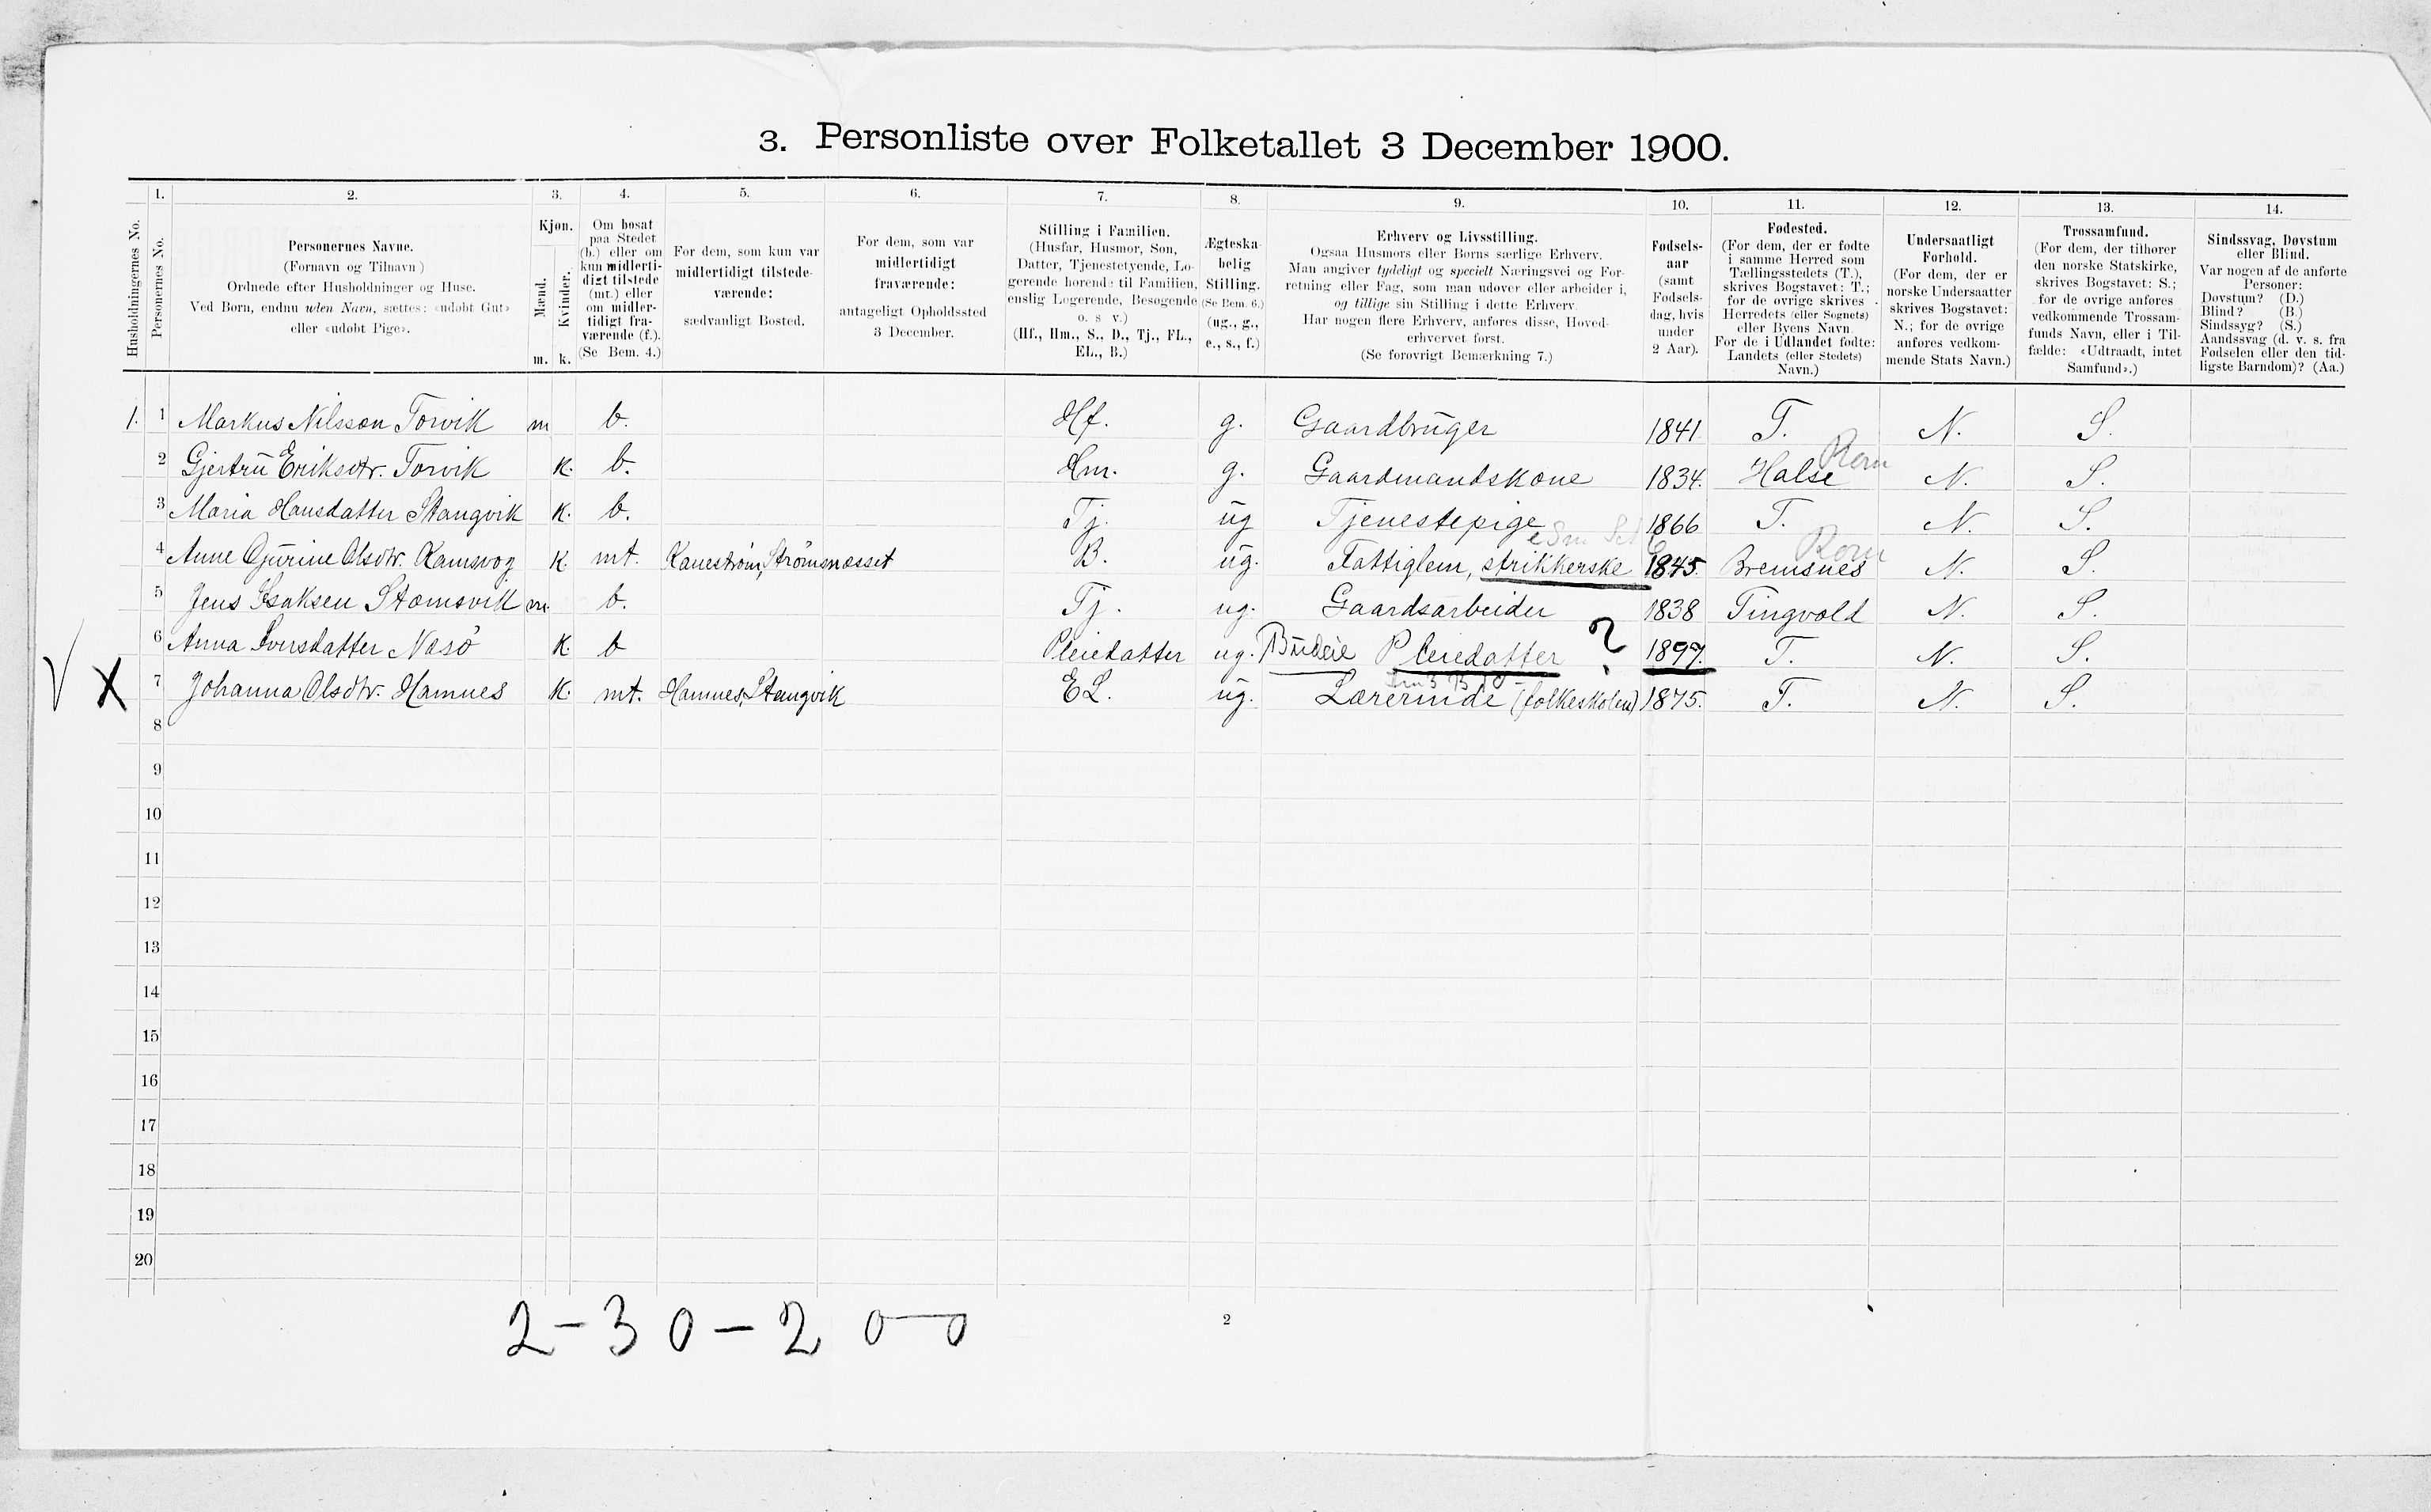 3. Personliste over Folketallet 3 December 1900.
1. 2. 3. 4. 5. 6. 7. 8. 9. 10. 11. 12. 13. 14.
Husholdningernes No.
Personernes No.
Personernes Navne.
(Fornavn og Tilnavn)
Ordnede efter Husholdninger og Huse.
Ved Børn, endnu uden Navn, sættes: «udøbt Gut»
eller «udøbt Pige».
Kjøn.
Mænd.
Kvinder.
m. k.
Om bosat
paa Stedet
(b.) eller om
kun midlerti-
digt tilstede
(mt.) eller
om midler-
tidigt fra-
værende (f.).
(Se Bem. 4.)
For dem, som kun var
midlertidigt tilstede-
værende:
sædvanligt Bosted.
For dem, som var
midlertidigt
fraværende:
antageligt Opholdssted
3 December.
Stilling i Familien.
(Husfar, Husmor, Søn,
Datter, Tjenestetyende, Lo-
gerende hørende til Familien,
enslig Logerende, Besøgende
o. s v.)
(Hf., Hm., S., D., Tj., FL.,
EL., B.)
Ægteska-
belig
Stilling.
(Se Bem. 6.)
(ug., g.,
e., s., f.)
Erhverv og Livsstilling.
Ogsaa Husmors eller Børns særlige Erhverv.
Man angiver tydeligt og specielt Næringsvei og For-
retning eller Fag, som man udøver eller arbeider i,
og tillige sin Stilling i dette Erhverv.
Har nogen flere Erhverv, anføres disse, Hoved-
erhvervet først.
(Se forøvrigt Bemærkning 7.)
Fødsels-
aar
(samt
Fødsels-
dag, hvis
under
2 Aar).
Fødested.
(For dem, der er fødte
i samme Herred som
Tællingsstedets (T.),
skrives Bogstavet: T.;
for de øvrige skrives
Herredets (eller Sognets)
eller Byens Navn
For de i Udlandet fødte:
Landets (eller Stedets)
Navn.)
Undersaatligt
Forhold.
(For dem, der er
norske Undersaatter
skrives Bogstavet:
N.; for de øvrige
anføres vedkom-
mende Stats Navn.)
Trossamfund.
(For dem, der tilhører
den norske Statskirke,
skrives Bogstavet: S.;
for de øvrige anføres
vedkommende Trossam-
funds Navn, eller i Til-
fælde: «Udtraadt, intet
Samfund».)
Sindssvag, Døvstum
eller Blind.
Var nogen af de anførte
Personer:
Døvstum? (D.)
Blind? (B.)
Sindssyg? (S.)
Aandssvag (d. v. s. fra
Fødselen eller den tid-
ligste Barndom)? (Aa.)
1. 1 Markus Nilsson Torvik m b. Hf. g. Gaardbruger 1841. T. N. S.
2 Gjertru Eriksdtr. Torvik k. b. Hm. g. Gaardmandskone 1834. Halse Rom N. S.
3 Maria Hansdatter Stangvik k. b. Tj. ug Tjenestepige 1866 T. N. S.
4 Anne Gjurine Olsdtr. Ramsvog k. mt. Kanestrøm, Strømsnæsset B. ug. Fattiglem, strikkerske 1845. Bremsnes Rom N. S.
5 Jens Isaksen Stomsvik m. b. Tj. ug. Gaardsarbeider 1838 Tingvold N. S.
6 Anna Iversdatter Nasø k. b Pleiedatter ug. Budeie Pleiedatter ? 1897. T. N. S.
X 7 Johanna Olsdtr. Hamnes k. mt. Hamnes, Stangvik EL. ug. Lærerinde (folkeskolen) 1875. T. N. S.
8
9
10
11
12
13
14
15
16
17
18
19
20
2-30-2 0-0
2